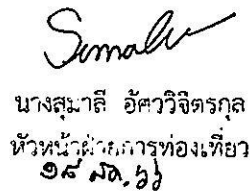 Sumalee
นางสุมาลี อัศววิจิตรกุล
หัวหน้าฝ่ายการท่องเที่ยว